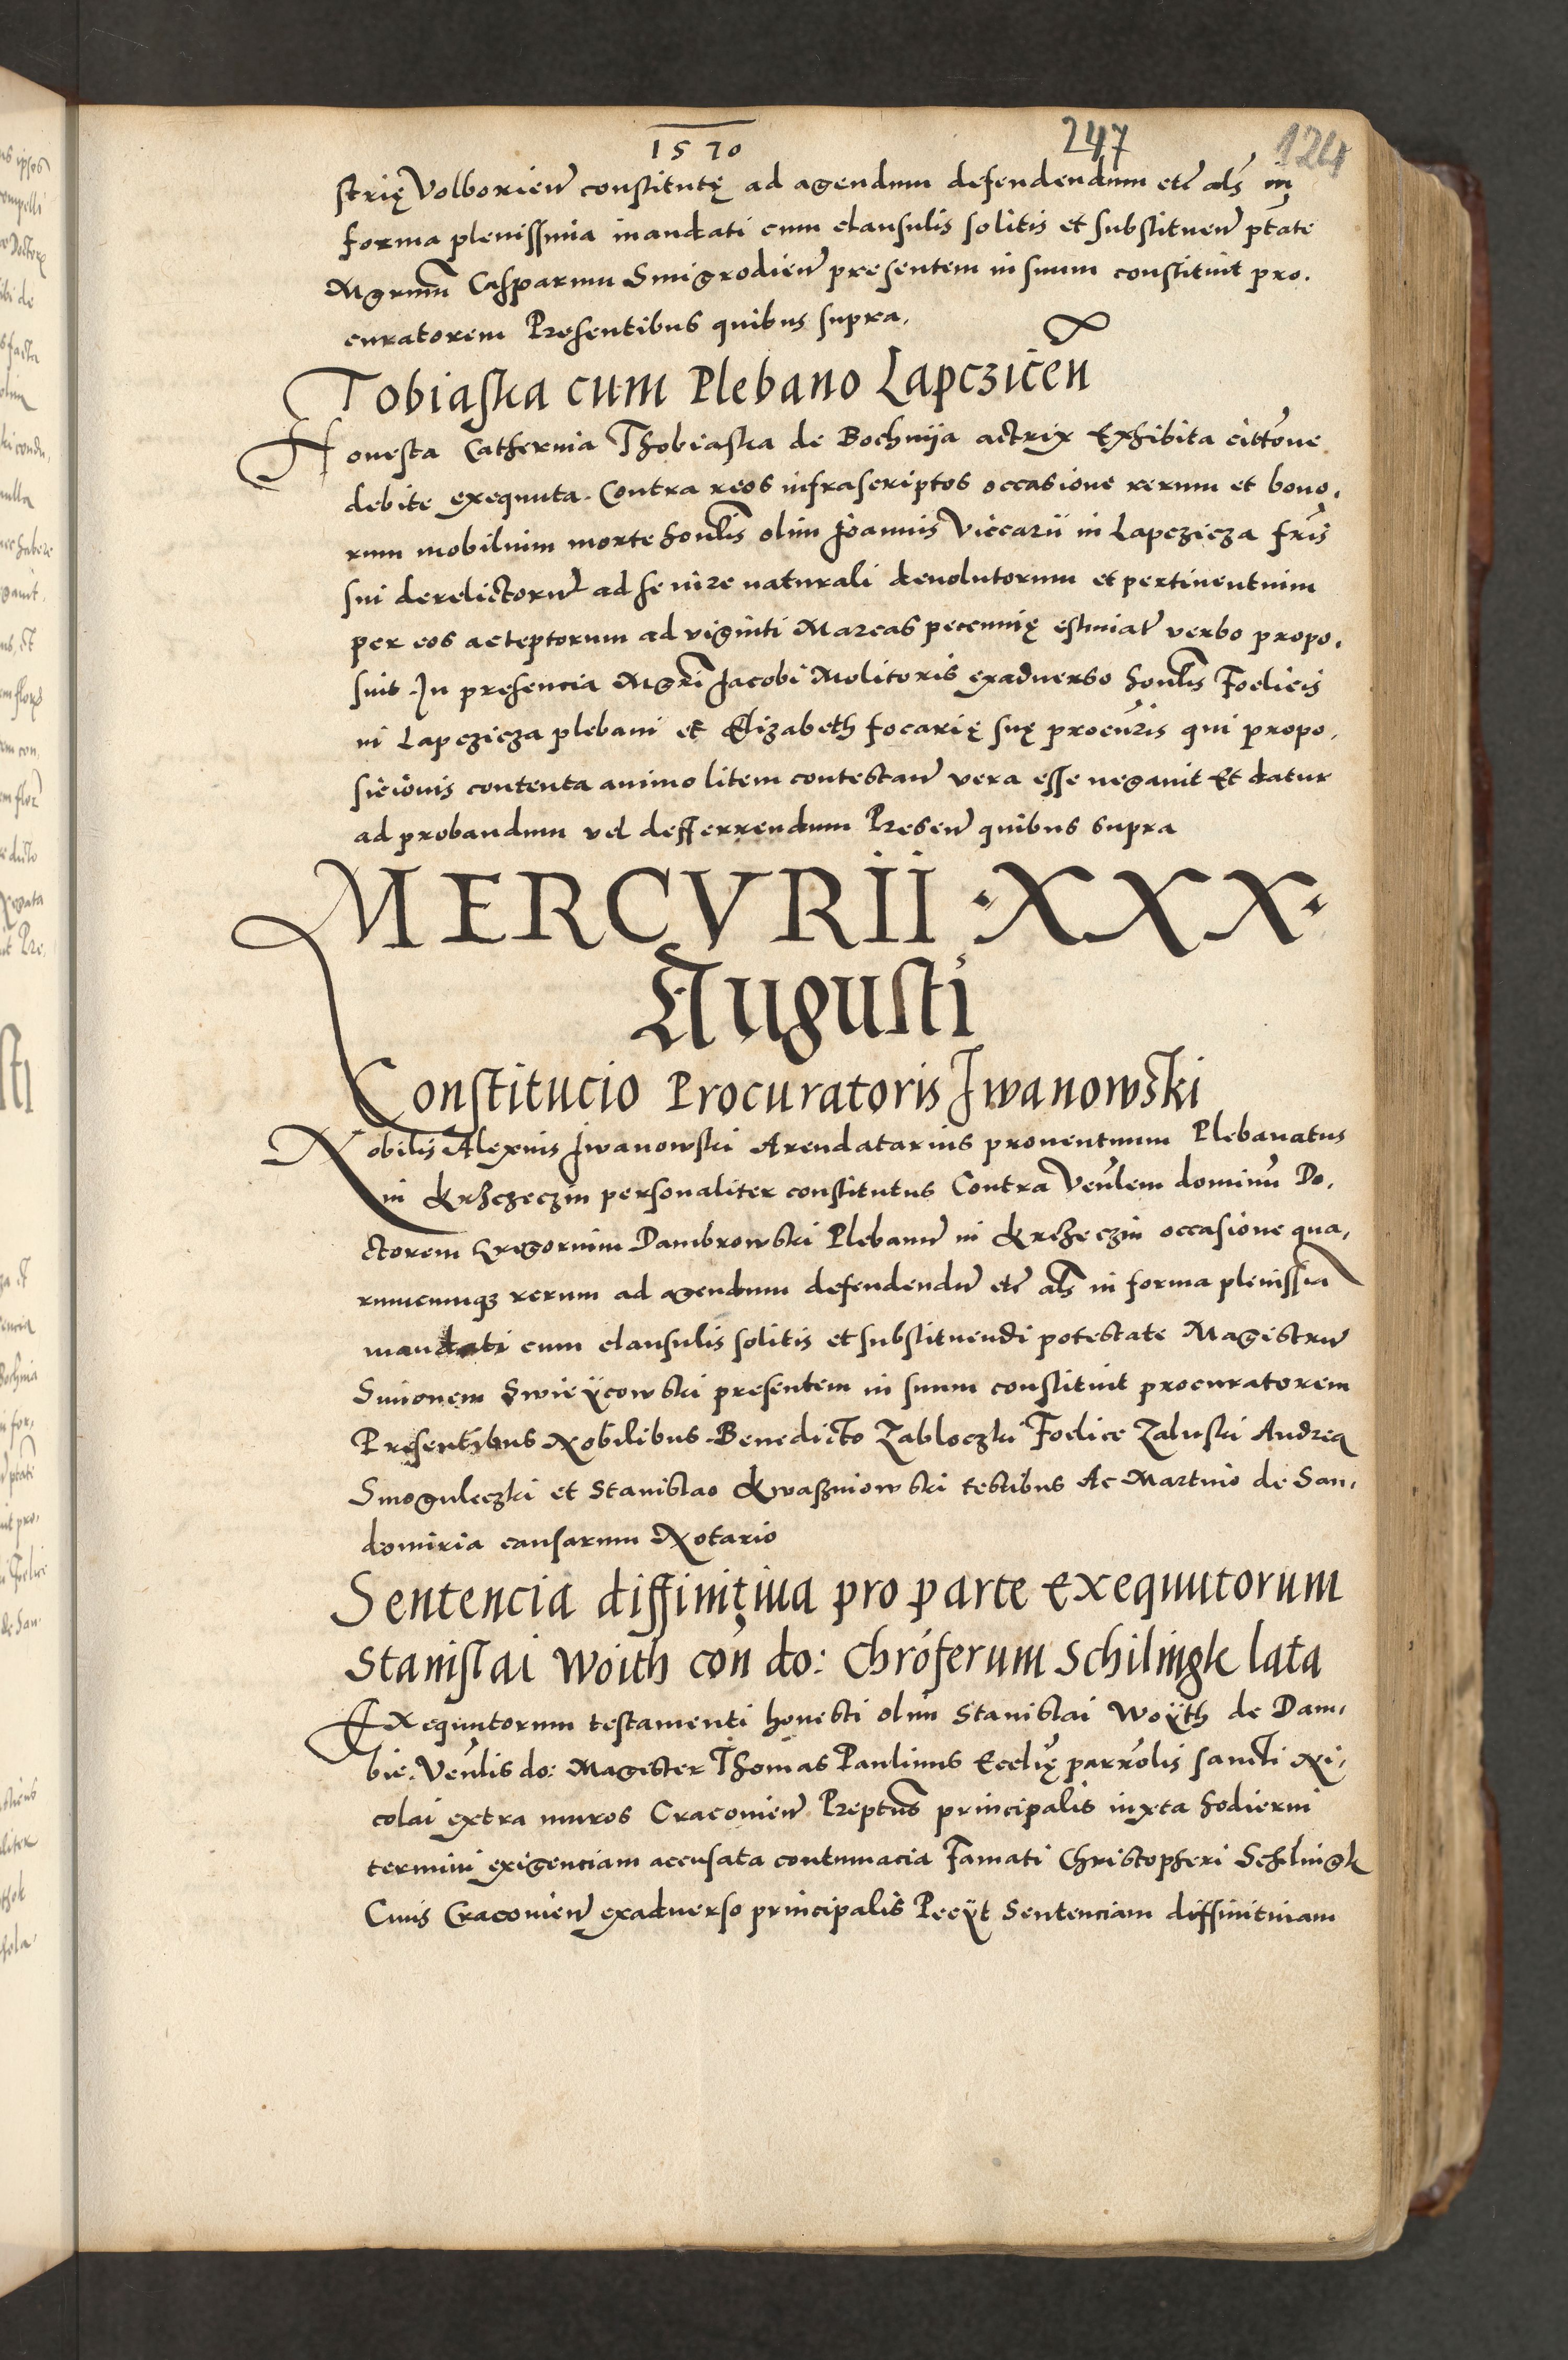 1570
247
124
strię Volborien̄ constitutę ad agendum defendendum etc̄ als̄ in
forma plenissima mandati cum clausulis solitis et substituen̄ ptāte
Mgrum̄ Casparum Smigrodien̄ presentem in suum constituit pro.
curatorem Presentibus quibus supra.
Tobiaska cum Plebano Lapczicen̄
Honesta Catherina Thobiaska de Bochnija actrix Exhibita citt̄one
debite exequuta. Contra reos infrascriptos occasione rerum et bono.
rum mobilium morte honl̄is olim Joannis Viccarii in Lapczicza fr̄is
sui derelictorum̄ ad se iure naturali devolutorum et pertinentium
per eos acceptorum ad viginti Marcas pecunnię estimat̄ verbo propo.
suit. In presencia Mgr̄i Jacobi Molitoris exadverso honl̄is Foelicis
in Lapczicza plebani et Elizabeth focarię suę procūris qui propo.
siciōnis contenta animo litem contestan̄ vera esse negavit Et datur
ad probandum vel defferrendum Presen̄ quibus supra
MERCVRII · XXX ·
Augusti
Constitucio Procuratoris Jwanowski
Nobilis Alexius Jwanowski Arendatarius proventuum Plebanatus
in Krzczeczin personaliter constitutus Contra Ven̄lem dominū Do.
ctorem Gregorium Dambrowski Plebanū in Krzheczin occasione qua.
rumcumqꝫ rerum ad agendum defendendū etc̄ als̄ in forma pleniss̄ia
mandati cum clausulis solitis et substituendi potestate Magistrū
Simonem Swieÿcowski presentem in suum constituit procuratorem
Presentibus Nobilibus Benedicto Zabloczki Foelice Zaluski Andrea
Smoguleczki et Stanislao Kwaszniowski testibus Ac Martino de San.
domiria causarum Notario
Sentencia diffinitiua pro parte exequutorum
Stanislai Woith con̄ do: Chrōferum Schilingk lata
Exequutorum testamenti honesti olim Stanislai Woÿth de Dam.
bie. Ven̄lis do: Magister Thomas Paulinus Eccl̄ię parrōlis sancti Ni.
colai extra muros Cracovien̄ Preptūs principalis iuxta hodierni
termini exigenciam accusata contumacia Famati Christopheri Schilingk
Civis Cracovien̄ exadverso principalis Peeÿt Sentenciam diffinitivam